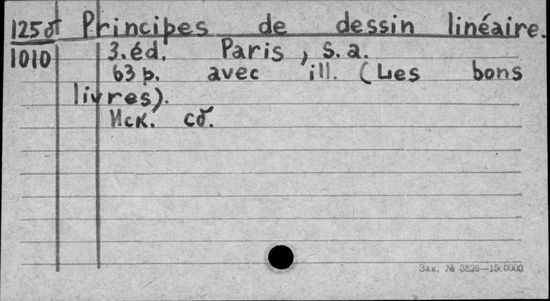 125б Principes de dessin linéaire.
1010 3.éd. Paris, s.a.
63 p. avec ill. (Les bons
livres).
Иск. сб.
Зак. № 3826—150000